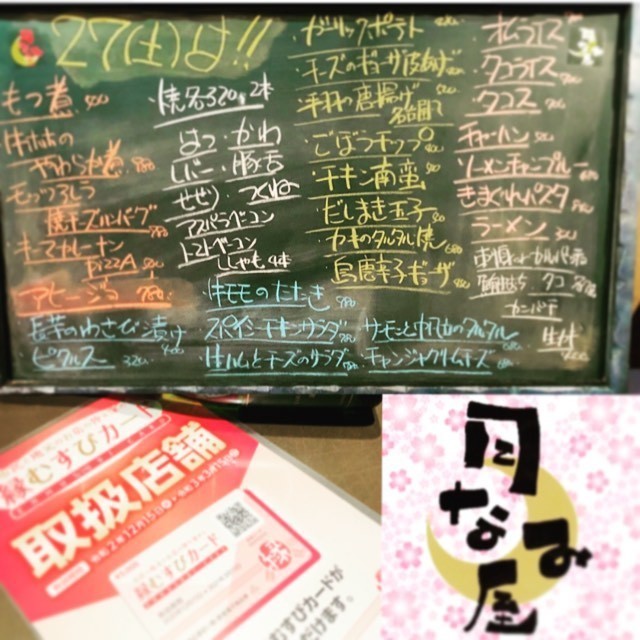 27(土)は!!
もつ煮 400
やわらか煮 780
キーマカレーナン
PIZZA
アヒージョ 780
長芋のわさび漬け 400
ピクルス 320
焼き鳥320 2本
はつ・かわ
レバー・豚舌
せせり つくね
アスパラベーコン
トマトベーコン
ししゃも4本
牛モモのたたき 980
スパイシーチキンサラダ
生ハムとチーズのサラダ
ガーリックポテト
チーズのギョーザ皮あげ
手羽の唐揚げ
ごぼうチップ
チキン南蛮
だしまき玉子
カキのタルタル焼
島唐辛子ギョーザ
サーモンとアボカドのタルタル
チャンジャクリームチーズ
オムライス
タコライス
タコス
チャーハン
ソーメンチャンプルー
きまぐれパスタ
ラーメン
タコ
カンパチ
縁むすびカード
取扱店舗
令和2年12月15日
縁むすびカード
むすびカードが
だけます。
月になみ屋